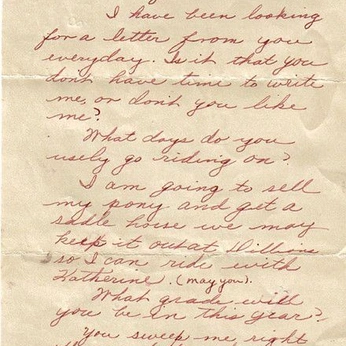 I have been looking
for a letter from you
everyday. Is it that you
dont have time to write
me, or don't you like
me?
What days do you
usely go riding on?
I am going to sell
my pony and get a
sadle horse we may
keep it out at Dillions
so I can ride with
Katherine. (may you).
What grade will
you be in this year?
You sweep me right